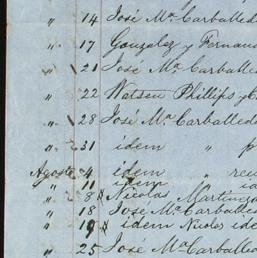 " 14 José Mª Carballed
" 17 Gonzalez y Fernan
" 21 José Mª Carballed
" 22 Watson Phillips y C
" 28 Jose Mª Carballedo
" 31 idem " p
Agosto 4 idem " rec
" 11 idem " id
" 8 Nicolas Martinez
" 18 José Mª Carballed
" 19 idem Nicolas ide
" 25 José Mª Carballed